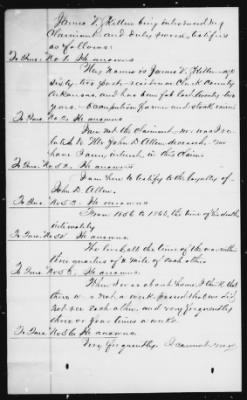 James V. Fletter being introduced by
Claimant and duly sworn, testifies
as follows:
To Ques. No. 1. He answers
My name is James V. Fletter age
sixty two post-residence Clark County
Arkansas, and has for last twenty two
years. Occupation farmer and stock raiser
To Ques. No. 2. He answers
I am not the Claimant nor was I re-
lated to Mr. John D. Allen deceased nor
have I any interest in this Claim
To Ques. No. 52. He answers
I am here to testify to the loyalty of
John D. Allen
To Ques. No. 53. He answers
From 1856 to 1866, the time of his death
intimately
To Ques. No. 54. He answers
We lived all the time of the war within
three quarters of a mile of each other
To Ques. No. 55. He answers
When I was about home I think that
there was not a week passed that we did
not see each other, and very frequently
three or four times a week.
To Ques. No. 56. He answers
Very frequently I cannot